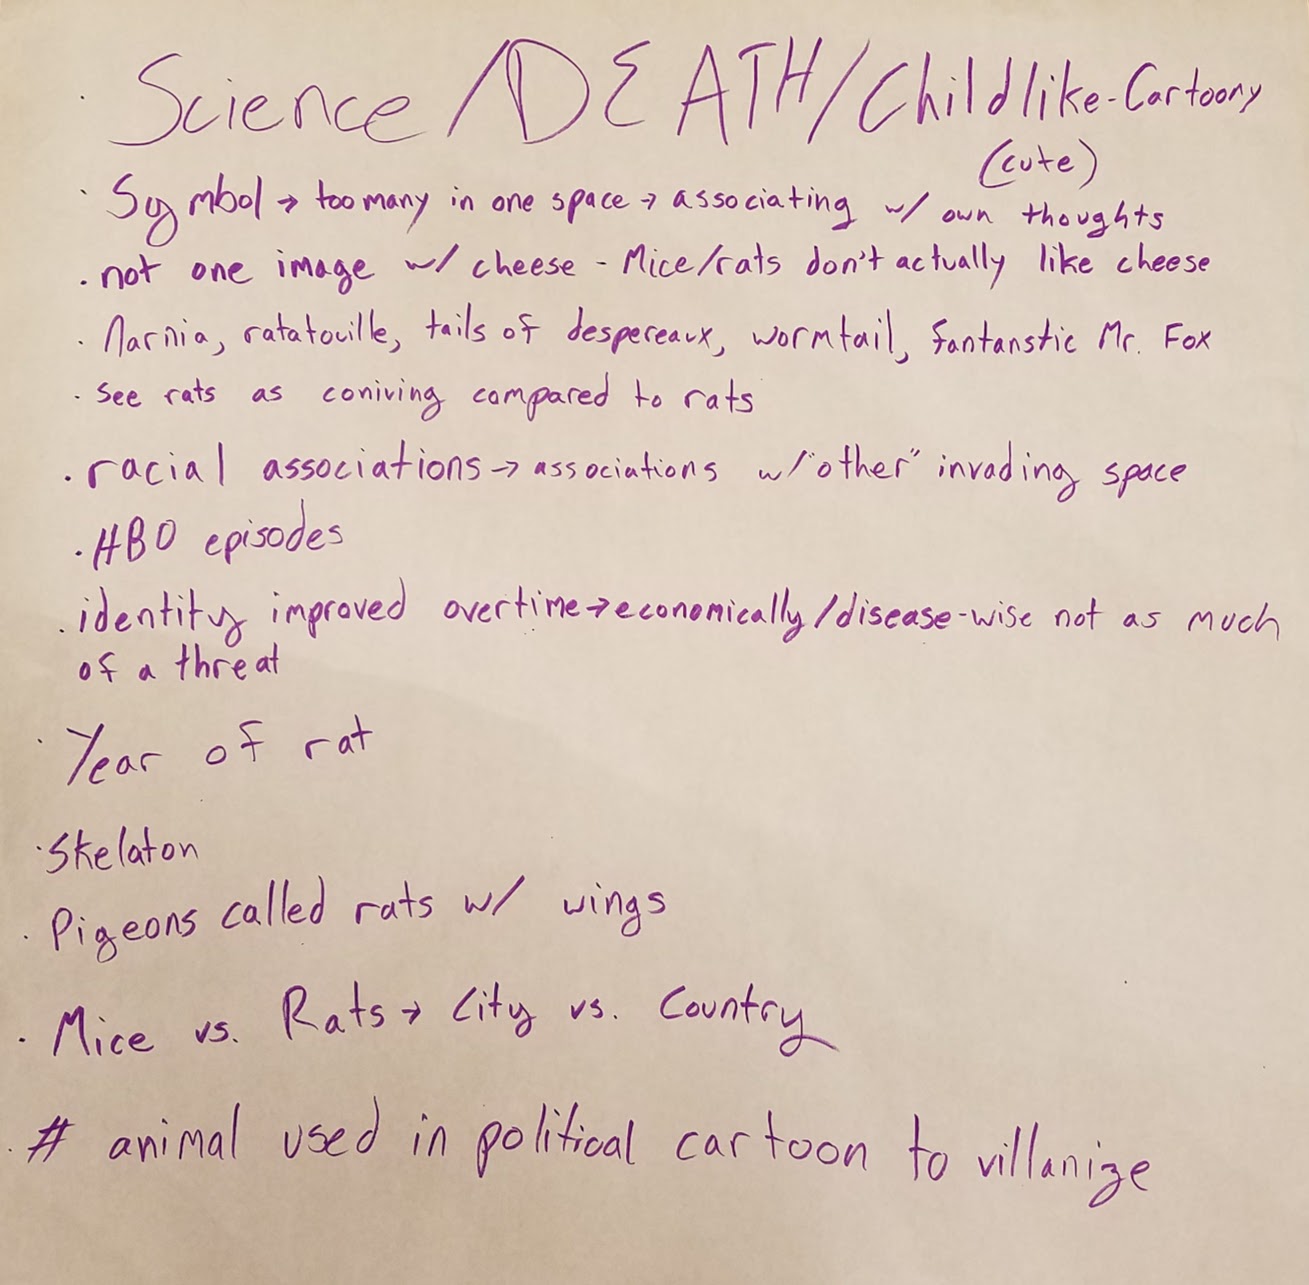 · Science/DEATH/Childlike-Cartoony
(cute)
· Symbol → too many in one space → associating w/ own thoughts
· not one image w/ cheese - Mice/rats don't actually like cheese
· Narnia, ratatouille, tails of despereaux, wormtail, fantanstic Mr. Fox
· See rats as coniving compared to rats
· racial associations → associations w/ "other" invading space
· HBO episodes
· identity improved overtime → economically/disease-wise not as much
of a threat
· Year of rat
· Skelaton
· Pigeons called rats w/ wings
· Mice vs. Rats → City vs. Country
· # animal used in political cartoon to villanize